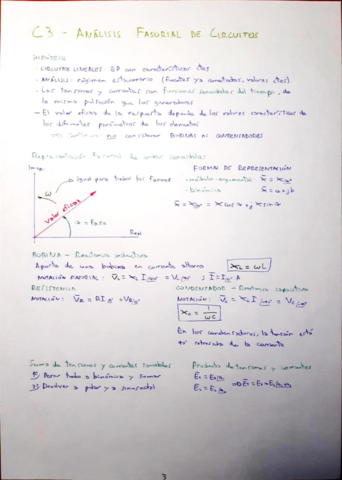 C3 - ANÁLISIS FASORIAL DE CIRCUITOS
HIPÓTESIS
- CIRCUITOS LINEALES: EP con características ctes
- ANÁLISIS: régimen estacionario (fuentes ya conectadas, valores ctes)
- Las tensiones y corrientes son funciones senoidales del tiempo, de
la misma pulsación que los generadores
- El valor eficaz de la respuesta depende de los valores característicos de
los diferentes parámetros de los elementos
no considerar BOBINAS NI CONDENSADORES
Representación Fasorial de ondas senoidales
FORMAS DE REPRESENTACIÓN
ω igual para todos los fasores
valor eficaz
α = FASE
Real
- módulo-argumental
- binómica a + jb
BOBINA - Reactancia inductiva
Aporte de una bobina en corriente alterna X_L = ωL
NOTACIÓN FASORIAL:
RESISTENCIA
NOTACIÓN:
CONDENSADOR - Reactancia capacitiva
NOTACIÓN:
X_C = 1/ωC
En los condensadores, la tensión está
90° retrasada de la corriente
Suma de tensiones y corrientes senoidales
1º. Pasar todo a binómica y sumar
2º. Devolver a polar y a senoidal
Producto de tensiones y corrientes
3